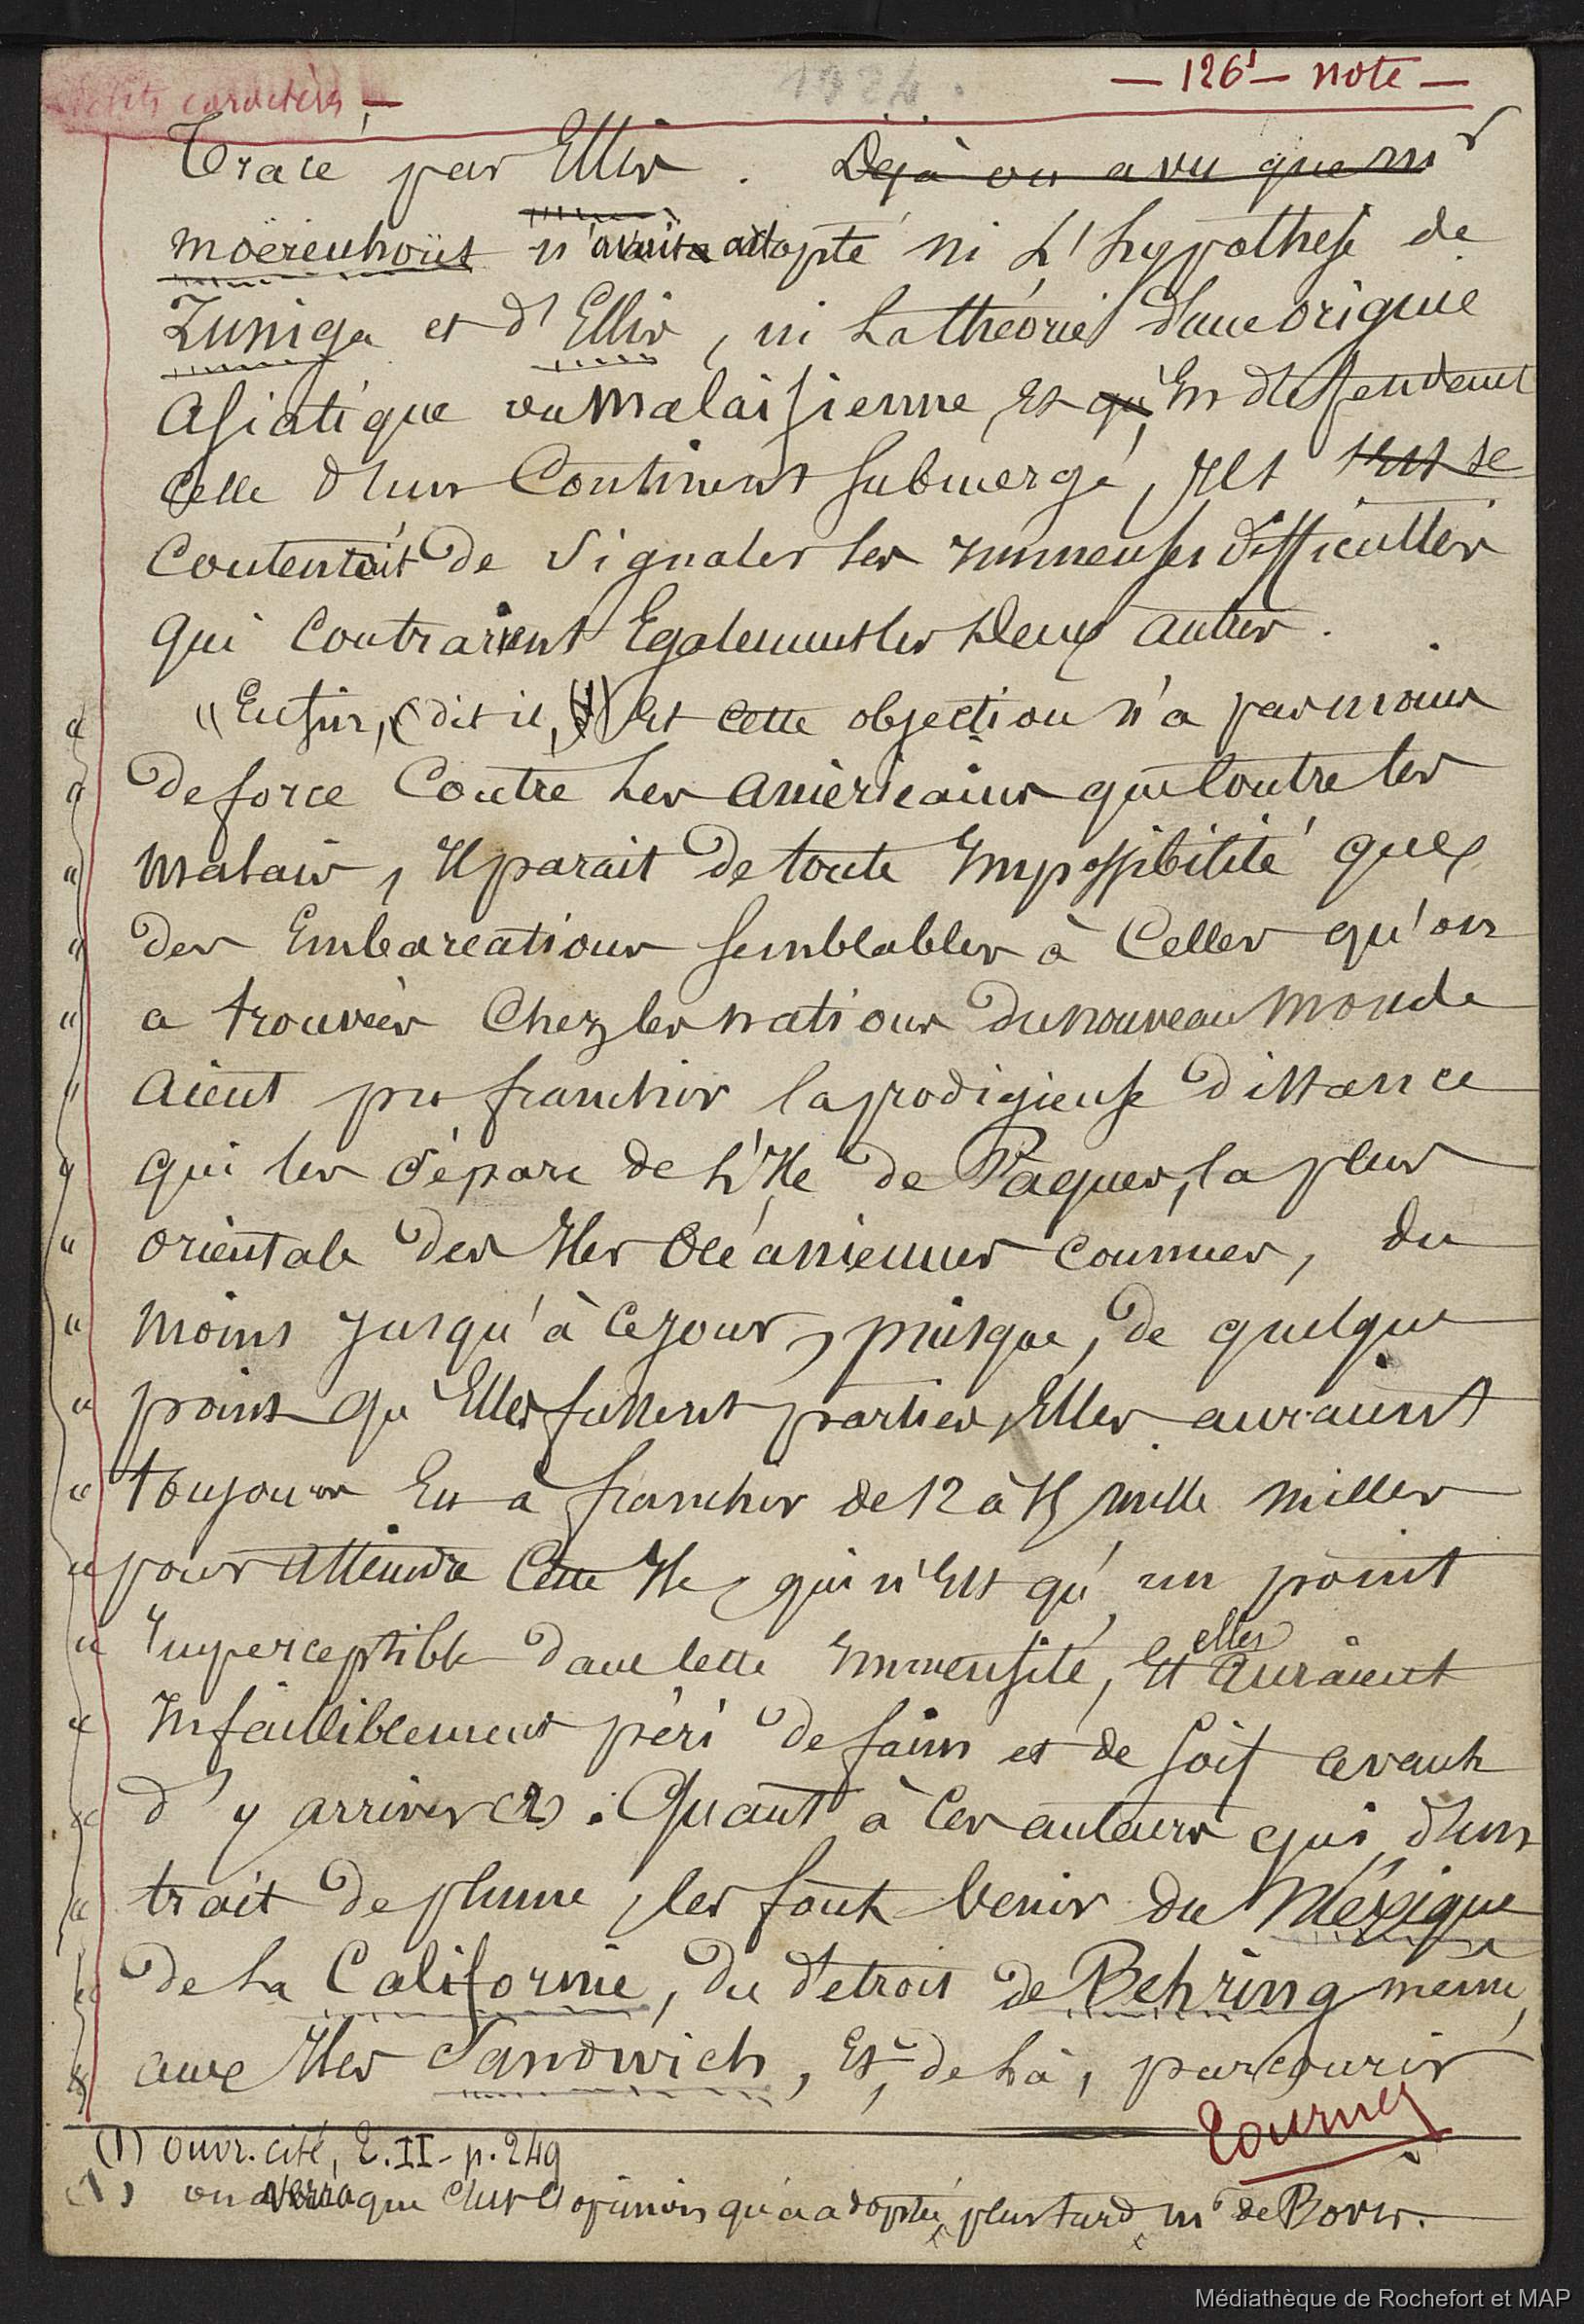 petits caractères — 1924. — 126¹ — note —
Tracé par Ellis. Déjà on a vu que Mr
Moërenhoüt n'avait adopté ni L'hypothese de
Zuniga et d'Ellis, ni La théorie d'une origine
Asiatique ou Malaisienne, Et qu'En défendant
Celle d'un Continent Submergé, Il s'est se
Contentait de Signaler les Immenses difficultés
qui Contrarient Egalement les Deux autres.
"Enfin, (dit il, (1) Et cette objection n'a pas moins
" de force Contre Les américains que Contre les
" Malais, Il parait de toute Impossibilité que
" des Embarcations semblables à Celles qu'on
" a trouvées Chez les nations du nouveau Monde
" aient pu franchir la prodigieuse distance
" qui les sépare de L'Ile de Paques, la plus
" orientale des Iles océaniennes connues, du
" moins Jusqu'à Ce Jour, puisque, de quelque
" point qu'Elles fussent parties, Elles auraient
" toujours Eu à franchir de 12 à 15 mille milles
" pour atteindre Cette Ile, qui n'Est qu'un point
" Imperceptible dans Cette Immensité, Et elles auraient
" Infailliblement péri de faim et de Soif avant
" d'y arriver (2). Quant à Ces auteurs qui, d'un
" trait de plume, les font Venir du Méxique
" de La Californie, du détroit de Behring meme,
" aux Iles Sandwich, Et, de Là, parcourir
Tournez
(1) ouvr. cité, T. II - p. 249
(1) on verra que C'est L'opinion qu'a adoptée, plus tard, Mr de Bovis.
Médiathèque de Rochefort et MAP